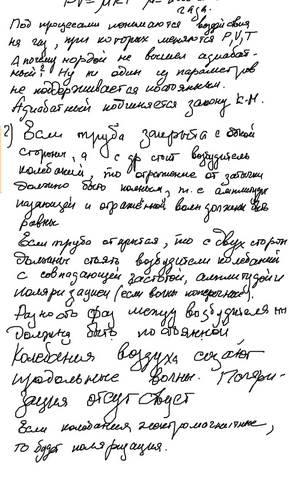 Под процессами понимаются воздействия
на газ, при которых меняются P, V, T
А почему нордой не вошел адиабат-
ный? Ни один из параметров
не поддерживается постоянным.
Адиабатный подчиняется закону К-М.
2) Если труба закрыта с одной
стороны, а с др стоит возбудитель
колебаний, то отражение от заглушки
должно быть полным, т. е амплитуды
падающей и отражённой волн должны быть
равны
Если труба открытая, то с двух сторон
должны стоять возбудители колебаний
с совпадающей частотой, амплитудой и
поляризацией (если волны поперечные).
Разность фаз между возбудителями
должна быть постоянной
Колебания воздуха создают
продольные волны. Поляри-
зация отсутствует
Если колебания электромагнитные,
то будет поляризация.